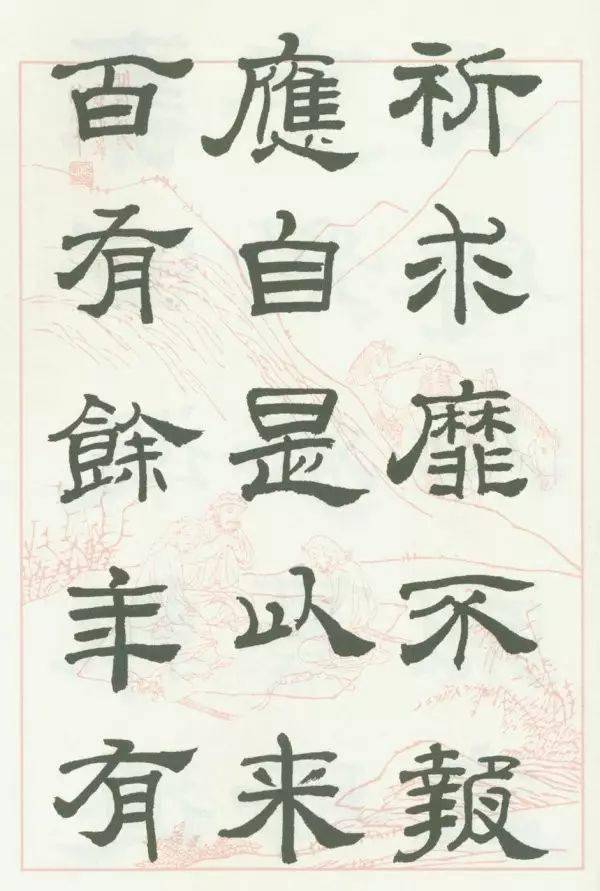 祈求靡不報
應自是以来
百有餘年有